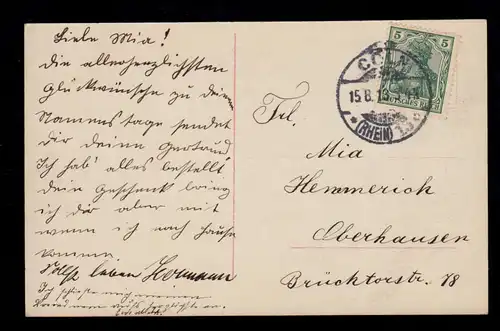 Liebe Mia!
Die allerherzlichsten
Glückwünsche zu deinem
Namenstage sendet
dir deine Gertrud
Ich hab' alles bestellt
dein Geschenk bring
ich dir aber mit
wenn ich nach Hause
komme.
leben Hermann
Ich schließe mich meinen
an.
5
CÖLN
15.8.
(RHEIN)
Frl.
Mia
Hemmerich
Oberhausen
Brücktorstr. 78